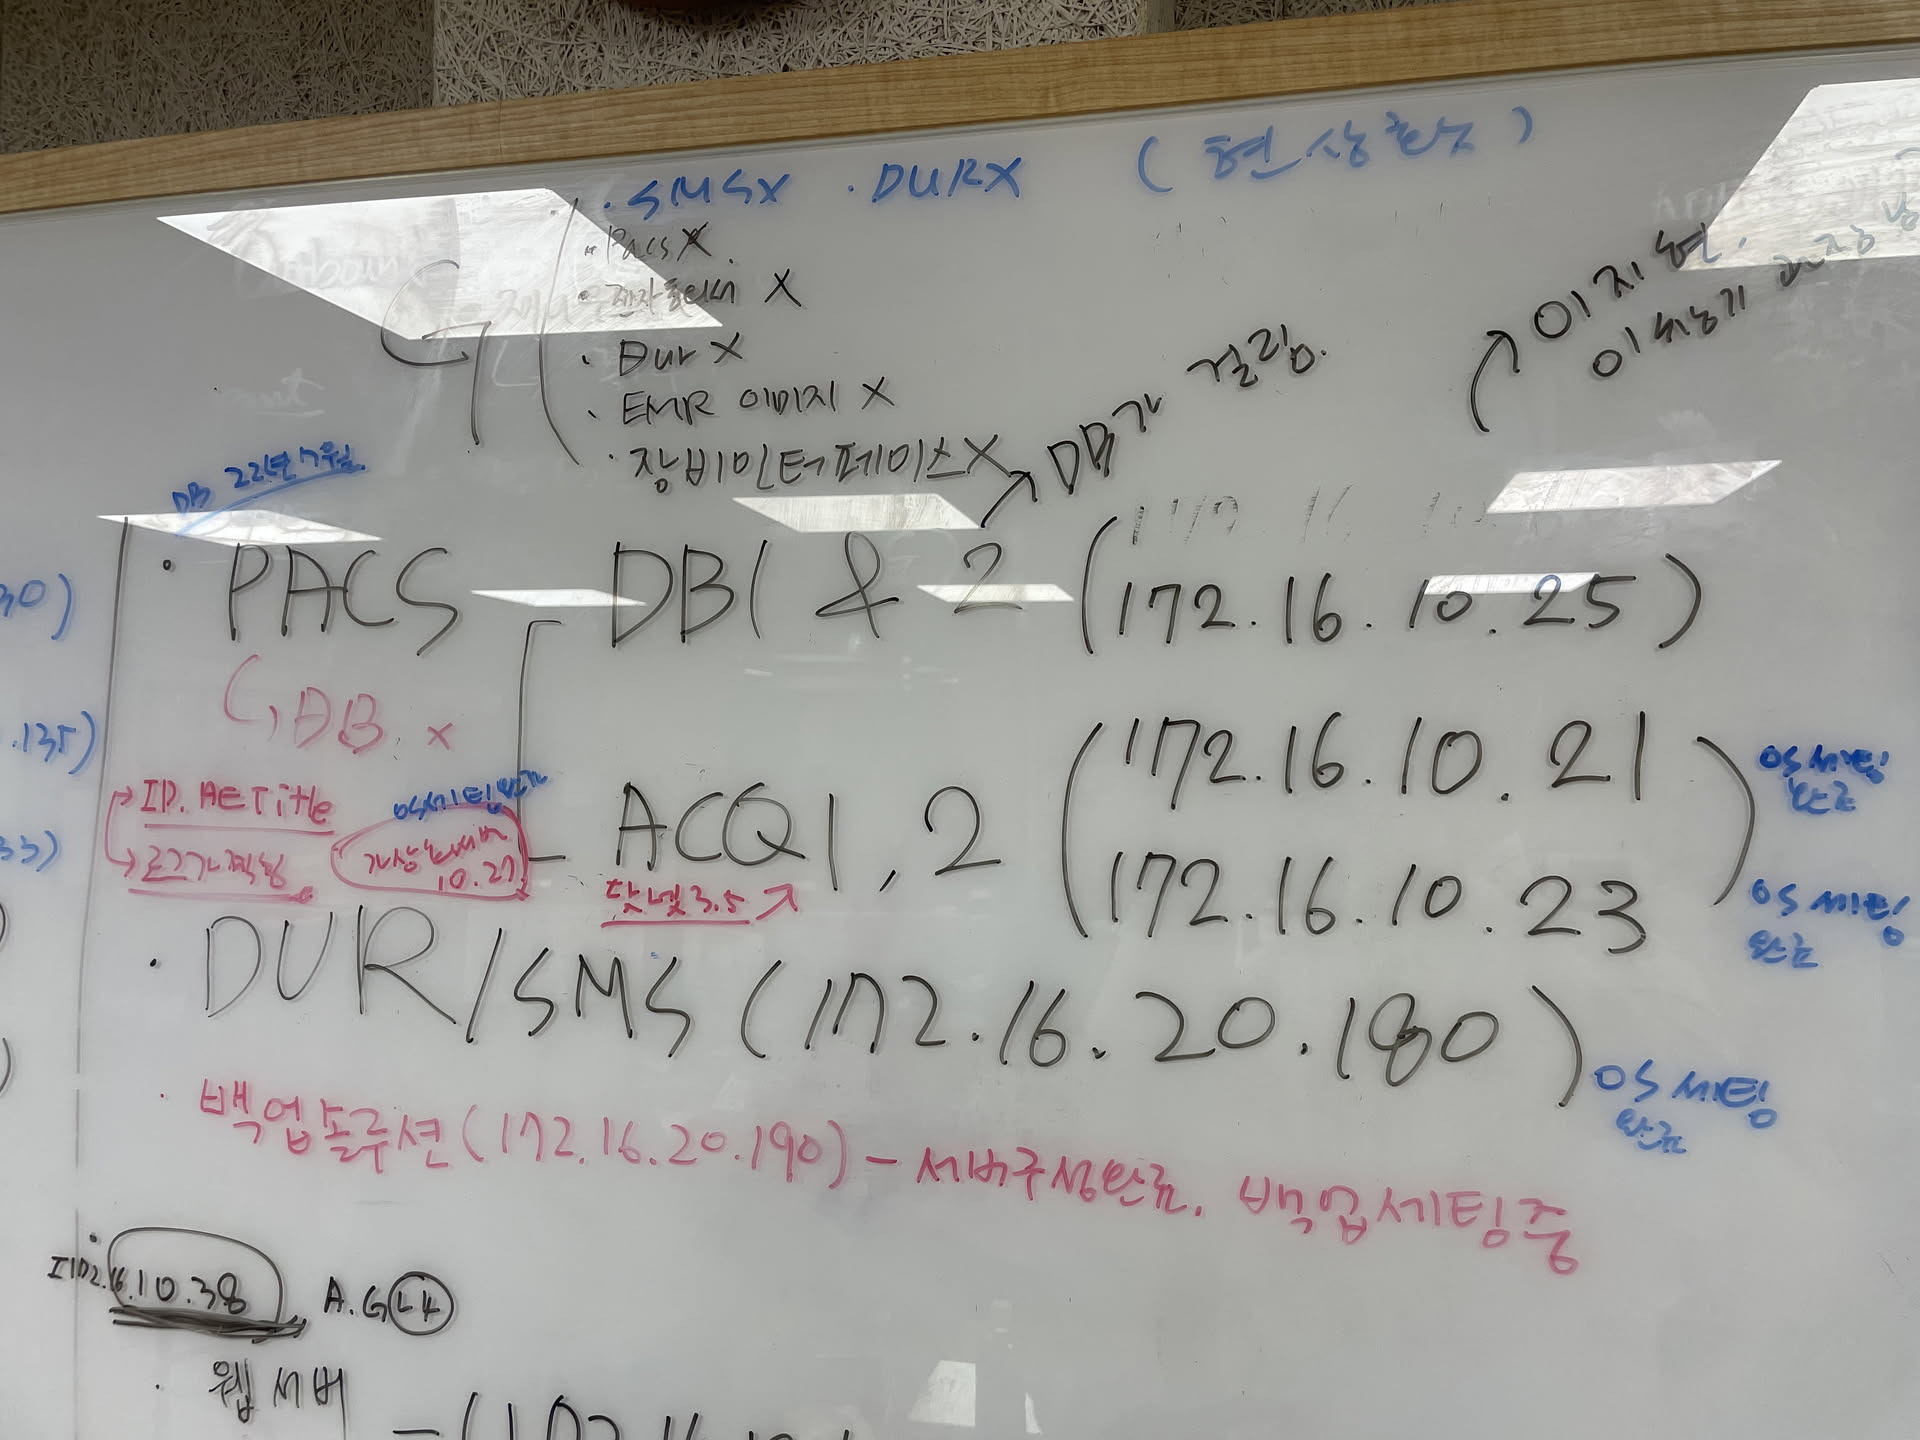 · SMSX · DURX (현상황)
· Pacs X
· 전자동의서 X
· Dur X
· EMR 이미지 X
· 장비인터페이스 X
DB가 걸림.
이지현.
DB 22년 7월
30)
· PACS
DB1 & 2 (172.16.10.25)
DB. X
.135)
ID. AE Title
로그가 찍힘
33)
OS세팅완료
가상화서버
10.27
ACQ1, 2 (172.16.10.21
172.16.10.23)
OS 세팅
완료
OS 세팅
완료
닷넷3.5
· DUR/SMS (172.16.20.180)
OS 세팅
완료
· 백업솔루션 (172.16.20.190) - 서버구성완료. 백업세팅중
172.16.10.38
A.G L4
· 웹서버